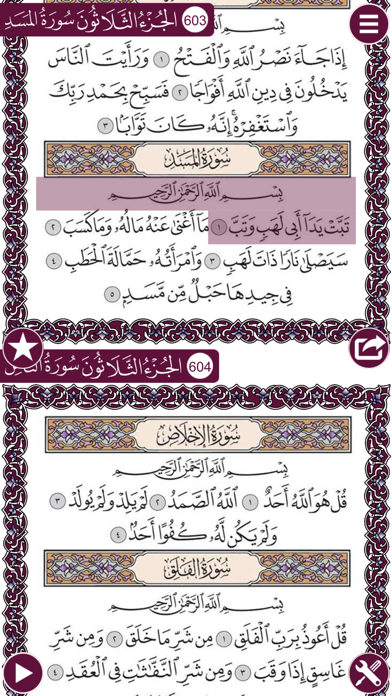 الجُزْءُ الثَّلَاثُونَ سُورَةُ المَسَدِ 603
بِسْمِ اللَّهِ الرَّحْمَٰنِ الرَّحِيمِ
إِذَا جَآءَ نَصْرُ اللَّهِ وَالْفَتْحُ ١ وَرَأَيْتَ النَّاسَ
يَدْخُلُونَ فِي دِينِ اللَّهِ أَفْوَاجًا ٢ فَسَبِّحْ بِحَمْدِ رَبِّكَ
وَاسْتَغْفِرْهُ ۚ إِنَّهُ كَانَ تَوَّابًا ٣
سُورَةُ المَسَدِ
بِسْمِ اللَّهِ الرَّحْمَٰنِ الرَّحِيمِ
تَبَّتْ يَدَآ أَبِي لَهَبٍ وَتَبَّ ١ مَآ أَغْنَىٰ عَنْهُ مَالُهُ وَمَا كَسَبَ ٢
سَيَصْلَىٰ نَارًا ذَاتَ لَهَبٍ ٣ وَامْرَأَتُهُ حَمَّالَةَ الْحَطَبِ ٤
فِي جِيدِهَا حَبْلٌ مِّن مَّسَدٍ ٥
الجُزْءُ الثَّلَاثُونَ سُورَةُ 604
سُورَةُ الإِخْلَاصِ
بِسْمِ اللَّهِ الرَّحْمَٰنِ الرَّحِيمِ
قُلْ هُوَ اللَّهُ أَحَدٌ ١ اللَّهُ الصَّمَدُ ٢ لَمْ يَلِدْ وَلَمْ يُولَدْ ٣
وَلَمْ يَكُن لَّهُ كُفُوًا أَحَدٌ ٤
سُورَةُ الفَلَقِ
بِسْمِ اللَّهِ الرَّحْمَٰنِ الرَّحِيمِ
قُلْ أَعُوذُ بِرَبِّ الْفَلَقِ ١ مِن شَرِّ مَا خَلَقَ ٢ وَمِن شَرِّ
غَاسِقٍ إِذَا وَقَبَ ٣ وَمِن شَرِّ النَّفَّاثَاتِ فِي الْعُقَدِ ٤